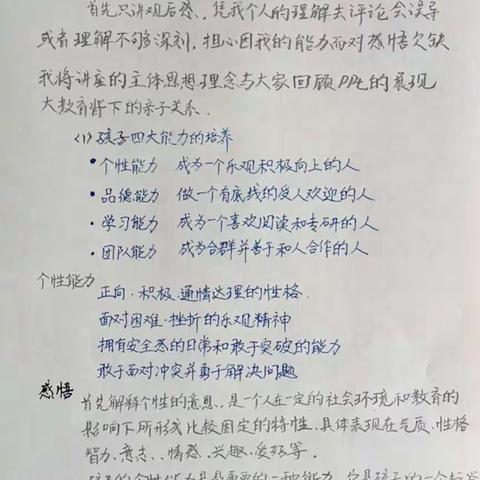 首先只讲观后感,凭我个人的理解去评论会误导
或者理解不够深刻,担心因我的能力而对感悟欠缺
我将讲座的主体思想理念与大家回顾PPt的展现
大教育背下的亲子关系.
<1>孩子四大能力的培养
•个性能力 成为一个乐观积极向上的人
•品德能力 做一个有底线的受人欢迎的人
•学习能力 成为一个喜欢阅读和专研的人
•团队能力 成为合群并善于和人合作的人
个性能力
正向.积极.通情达理的性格.
面对困难.挫折的乐观精神
拥有安全感的日常和敢于突破的能力
敢于面对冲突并勇于解决问题
感悟
首先解释个性的意思,是一个人在一定的社会环境和教育的
影响下所形成比较固定的特性,具体表现在气质、性格
智力、意志、、情感、兴趣、爱好等.